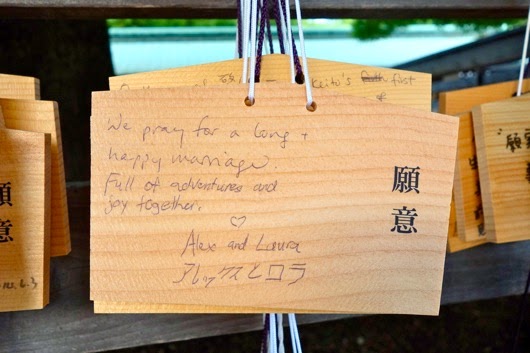 We pray for a long +
happy marriage.
Full of adventures and
joy together.
♡
Alex and Laura
アレックスとロラ
願意
keito's first
願
意